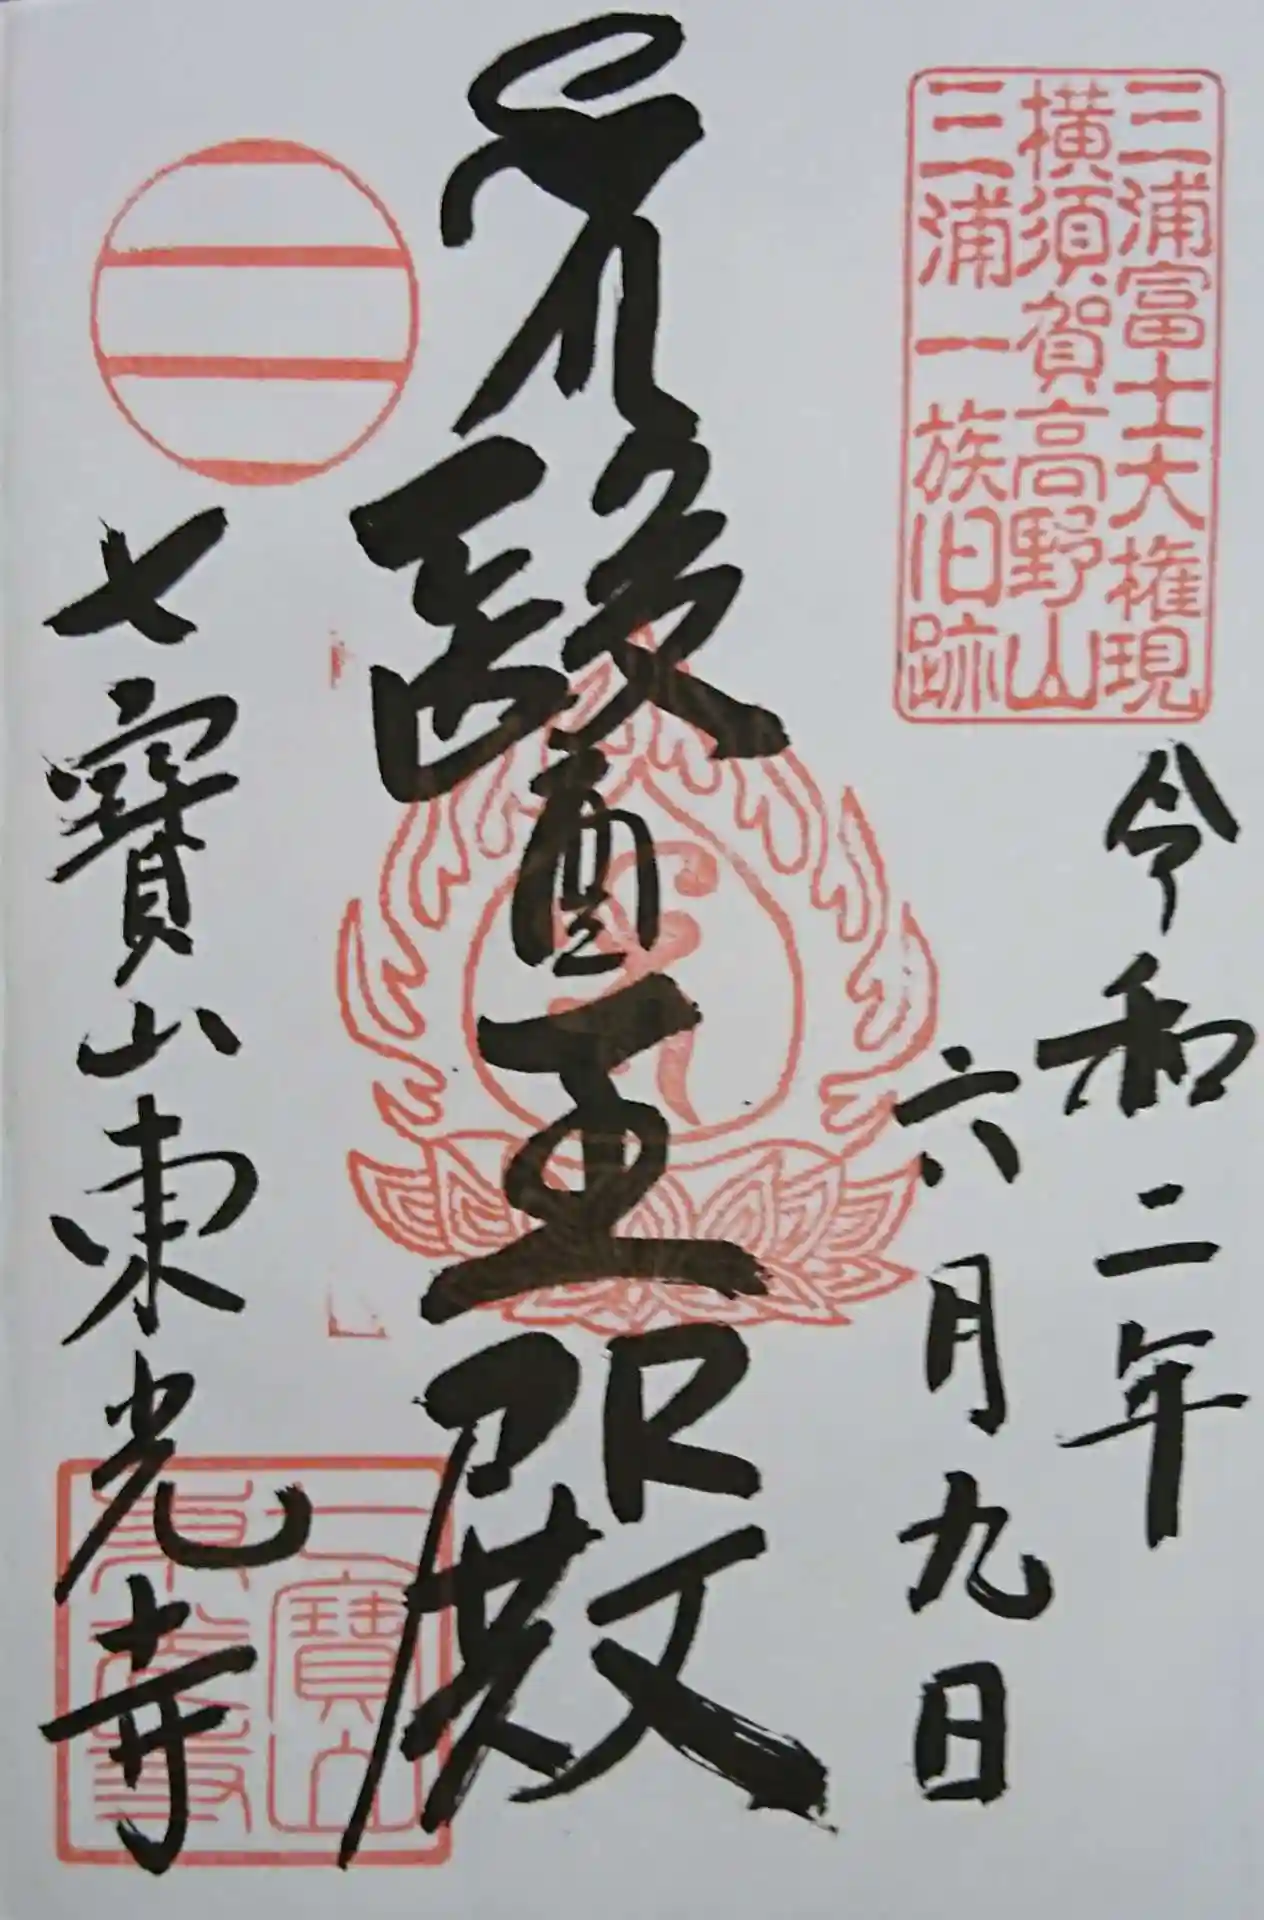 三浦富士大権現
横須賀高野山
三浦一族旧跡
令和二年
六月九日
醫王殿
七寶山東光寺
七寶山
東光寺